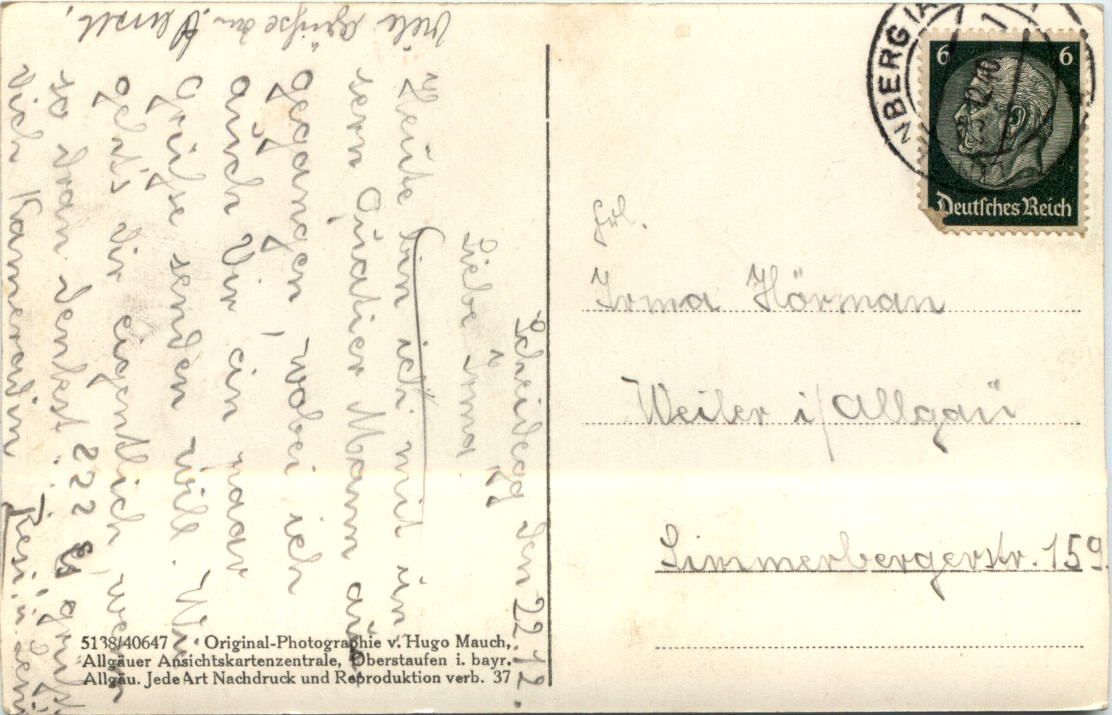 Scheidegg, den 22.12.
Liebe Irma
Heute bin ich mit un
sern Quatier Mann aus
gegangen, wobei ich
auch Dir, ein paar
Grüße senden will. Wie
geht's Dir eigentlich, wenn
so dran denkst. ? ? ? Es grüßt
Dich Kameradin Resi, u. Leni
Viele Grüße an
Frl.
Irma Hörman
Weiler i/Allgäu
Simmerbergerstr. 159
NBERG (A
1
12.40
6 6
Deutsches Reich
5138/40647 · Original-Photographie v. Hugo Mauch,
Allgäuer Ansichtskartenzentrale, Oberstaufen i. bayr.
Allgäu. Jede Art Nachdruck und Reproduktion verb. 37